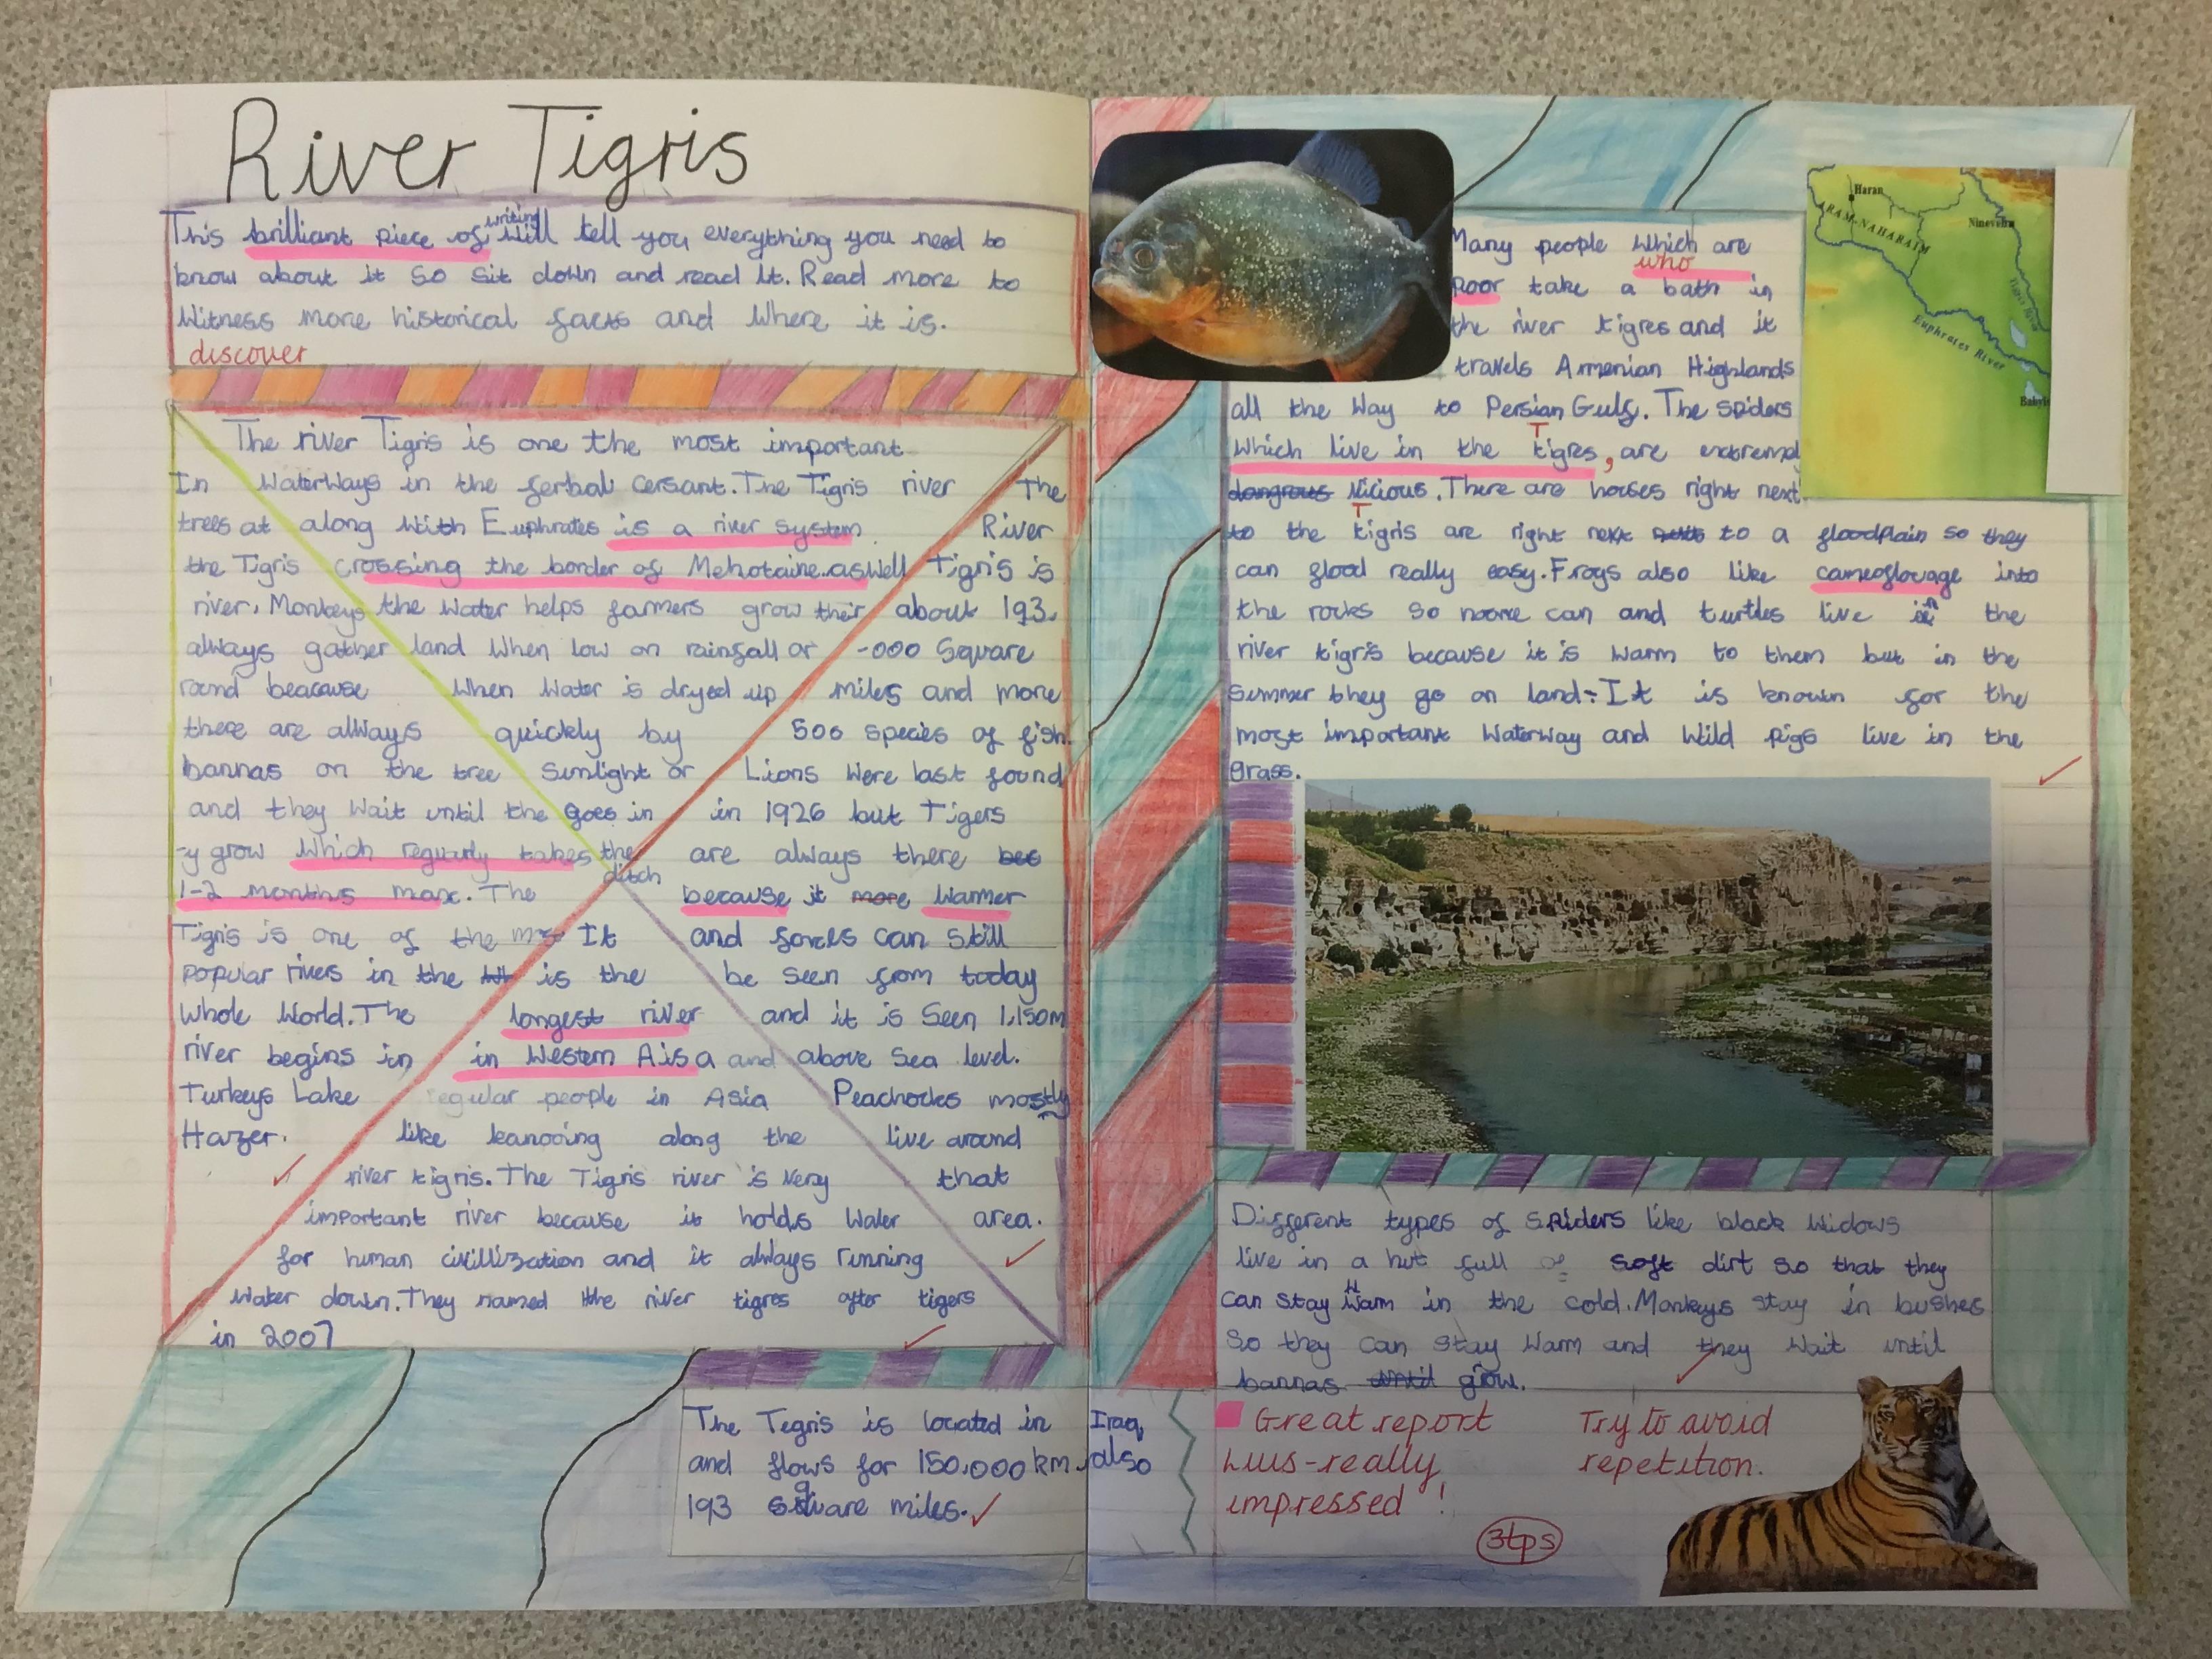 River Tigris
This brilliant piece of writing will tell you everything you need to
know about it so sit down and read it. Read more to
Witness more historical facts and Where it is.
discover
The river Tigris is one the most important
WaterWays in the ferbal cersant. The Tigris river
along With Euphrates is a river system
crossing the border of Mehotaine..aswell
the Water helps farmers grow their
land When low on rainfall or
When Water is dryed up
quickly by
Sunlight or
goes in
the
ditch
In
trees at
the Tigris
river. Monkeys
always gather
round beacause
there are always
bannas on the tree
and they Wait until the
-y grow Which reguarly takes
1-2 months max. The
Tigris is one of the
popular rivers in the
Whole World. The
river begins in
Turkeys Lake
Hazer.
The
River
Tigris is
about 193.
-000 Square
miles and more
500 species of fish.
Lions Were last found
in 1926 but Tigers
are always there bec
because it more Warmer
and foxes can still
be seen from today
and it is Seen 1,150m
above Sea level.
Peachocks mostly
live around
that
area.
It
is the
longest river
in Western Aisa and
regular people in Asia
like kanooing along the
river tigris. The Tigris river is very
important river because it holds Water
for human civillization and it always running
Water down. They named the river tigres after tigers
in 2007
The Tegris is located in Iraq
and flows for 150.000 km. also
193 square miles.
Many people Which are
who
poor take a bath in
the river tigres and it
travels Armenian Highlands
all the Way to Persian Gulf. The spiders
T
Which live in the tigres, are extremly
dangrous vicious. There are horses right next
T
to the tigris are right next to a floodplain so they
can flood really easy. Frogs also like cameoflouage into
the rocks so noone can and turtles live in the
river tigris because it is Warm to them but in the
summer they go on land. It is known for the
most important Waterway and Wild pigs live in the
grass.
Haran
ARAM-NAHARAIM
Nineveh
Tigris River
Euphrates River
Different types of spiders like black Widows
live in a hut full of soft dirt so that they
can stay Warm in the cold. Monkeys stay in bushes
so they can stay Warm and they Wait until
bannas until grow.
Great report
Luis-really
impressed!
Try to avoid
repetition.
3tps